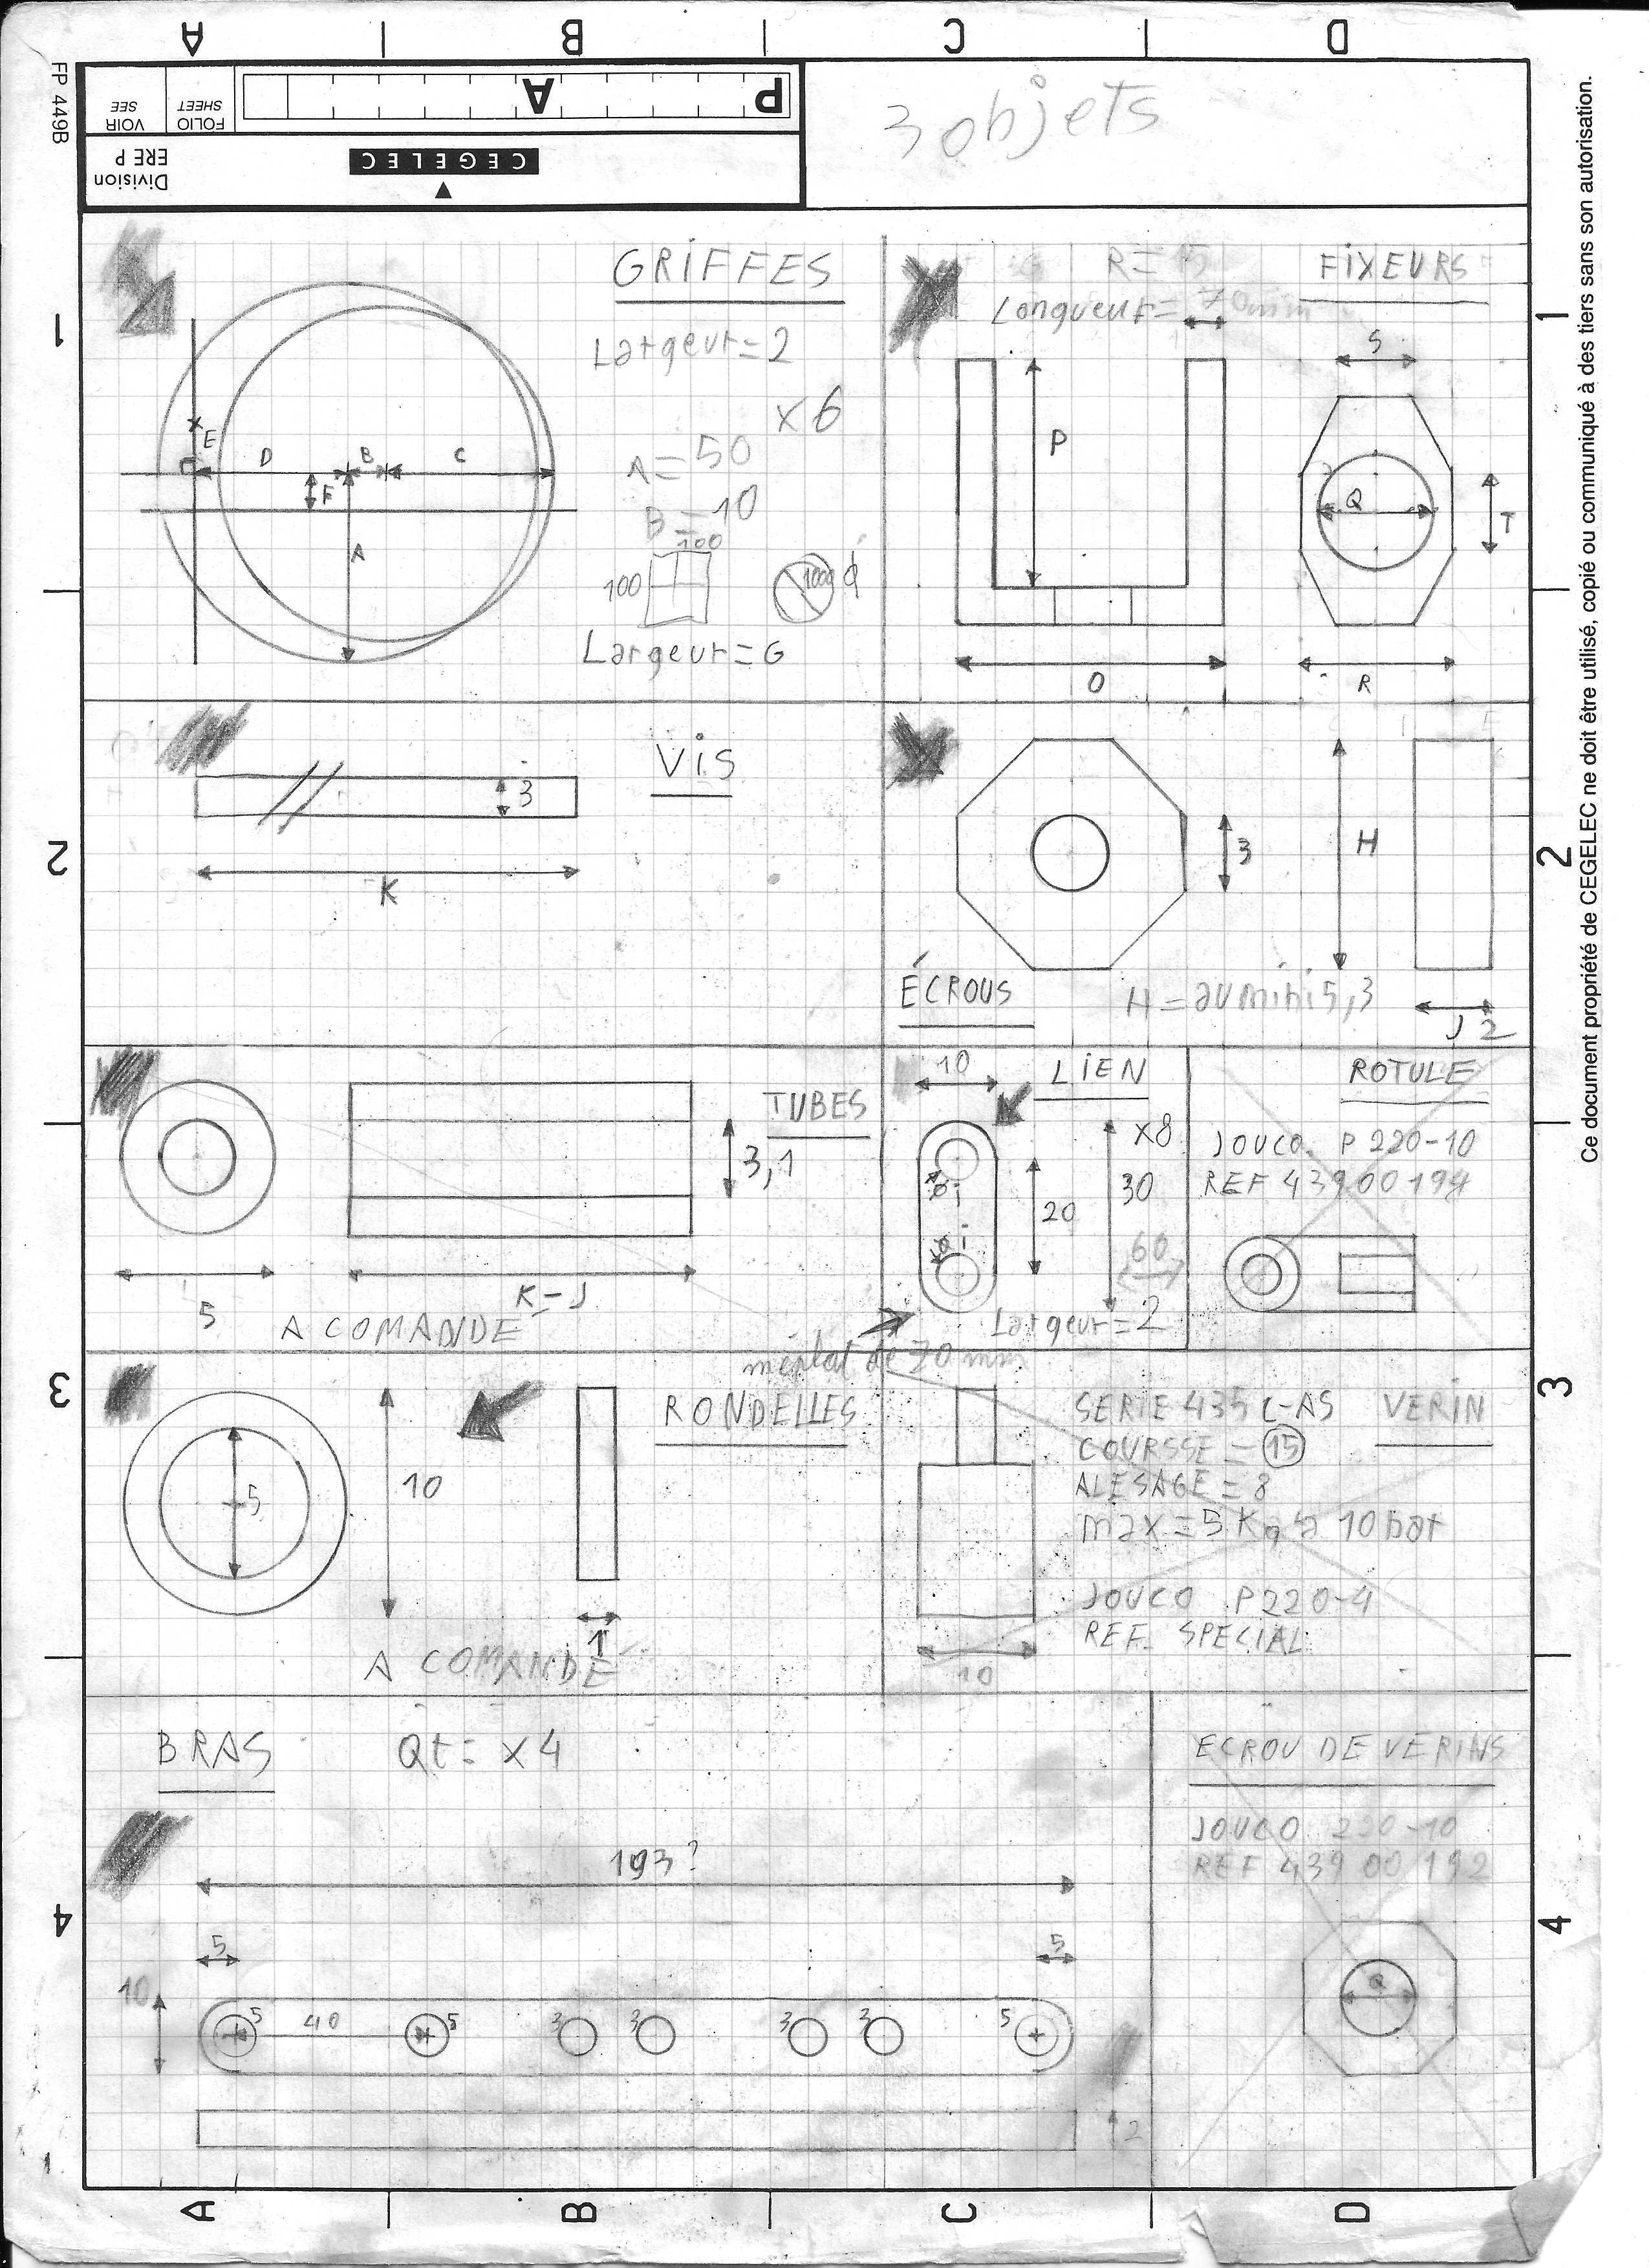 A B C D
FP 449B
VOIR
SEE
FOLIO
SHEET
A
P
Division
ERE P
CEGELEC
3 objets
Ce document propriété de CEGELEC ne doit être utilisé, copié ou communiqué à des tiers sans son autorisation.
1
1
GRIFFES
Largeur=2
x6
A=50
B=10
100
100
1000 ϕ
Largeur=G
E
D B C
F
A
R=
FIXEURS
Longueur= 70mm
S
P
Q
T
O
R
2
2
VIS
3
K
3
H
ÉCROUS
H=au mini 5,3
J 2
TUBES
3,1
5
K-J
A COMANDE
10
LIEN
x8
30
20
60
Largeur=2
méplat de 70 mm
ROTULE
JOUCO P 220-10
REF 439 00 194
3
3
RONDELLES
5
10
1
A COMANDE
SERIE 435 L-AS VERIN
COURSSE = 15
ALESAGE = 8
max=5 Kg à 10 bar
JOUCO P220-4
REF. SPECIAL
10
BRAS
Qt= x4
193?
5
5
10
5 40 5 3 3 3 3 5
2
ECROU DE VERINS
JOUCO 220-10
REF 439 00 192
Q
4
4
1
A B C D